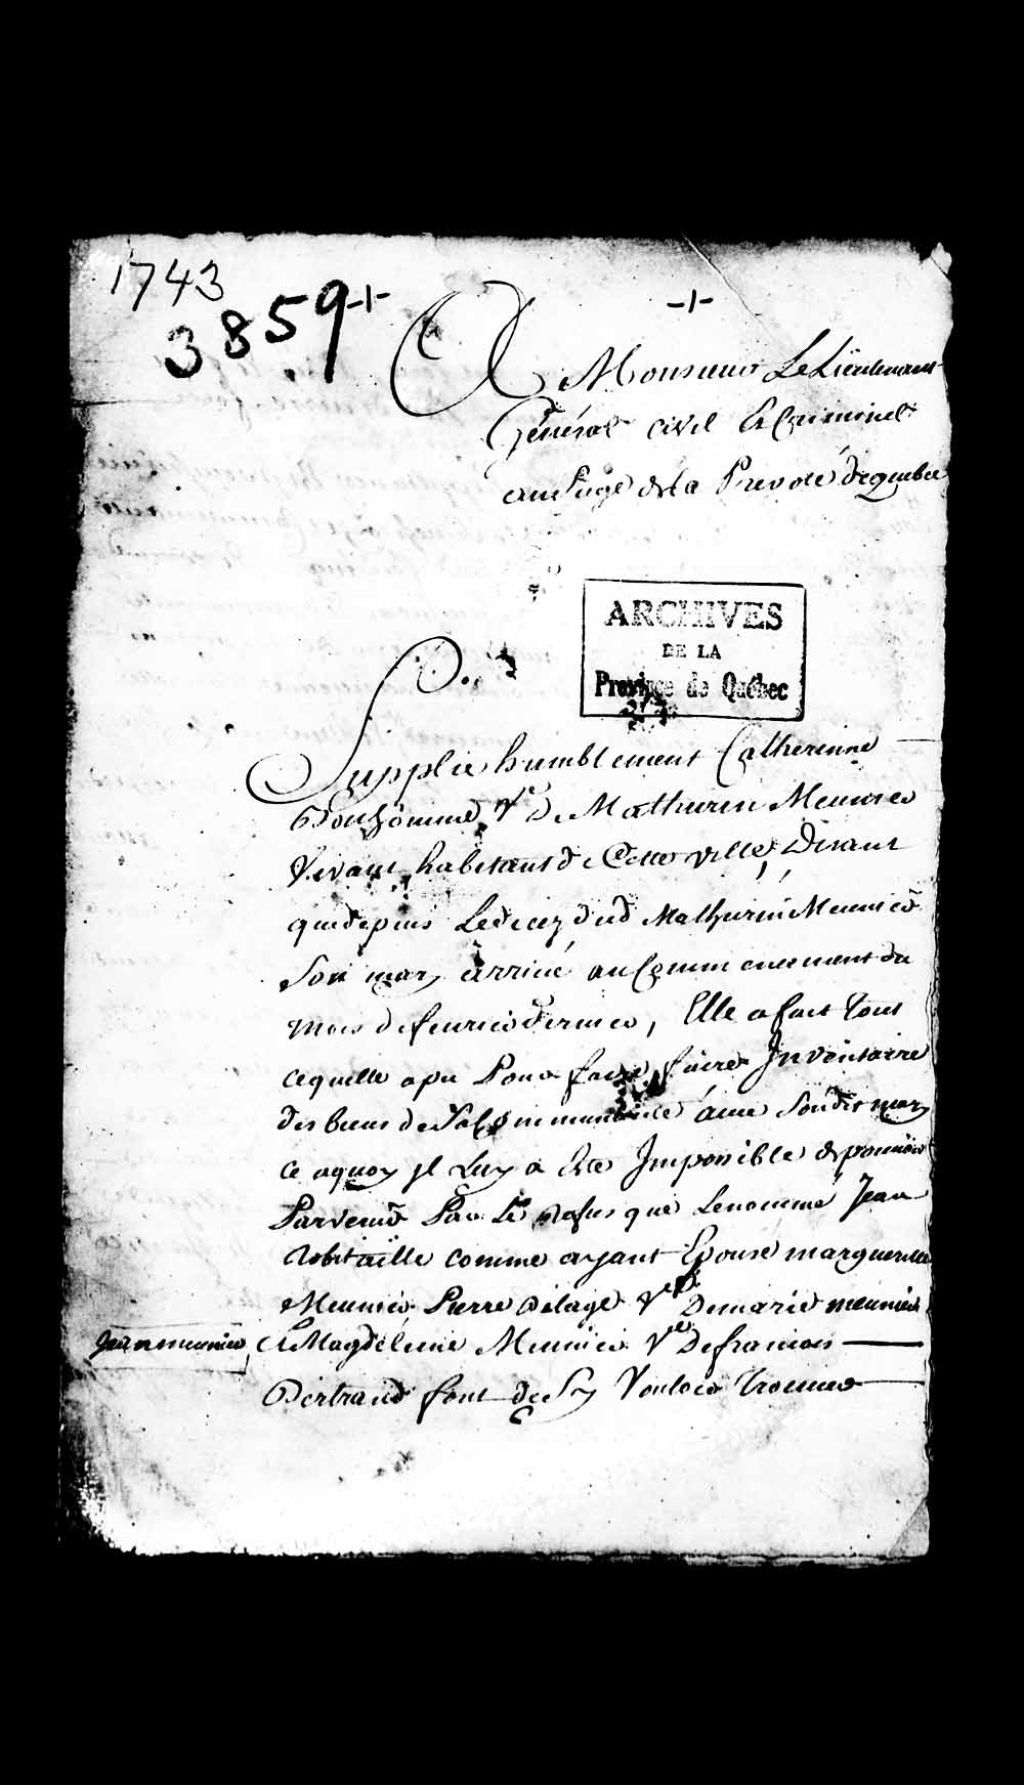 1743
3859
A Monsieur Le Lieutenant
Général civil Et Criminel
au siege de la Prevoté de quebec
ARCHIVES
DE LA
Province de Québec
Supplie humblement Catherinne
Bonhomme Ve De Mathurin Meunier
Vivant habitant de Cette ville, Disant
que depuis Le decez dud Mathurin Meunier
Son mary arrivé au Commencement du
mois de feurier dernier, Elle a fait Tout
ce quelle a pu Pour faire faire Inventaire
des biens de Sa Communauté avec Son dit mary
ce a quoy jl Luy a Eté Impossible de pouuoir
Parvenir Par Le refus que Le nommé Jean
Robitaille comme ayant Epousé marguerite
Meunier Pierre Delage Ve De marie meunier
Jean meunier Et Magdeleine Meunier Ve De francois
Bertrand font de Sy Vouloir Trouuer